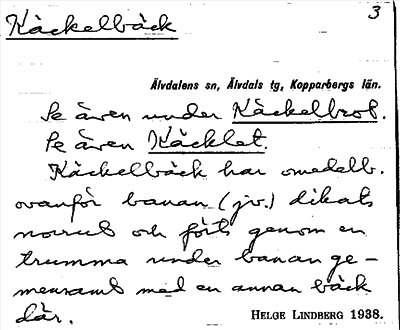 Käckelbäck
3
Älvdalens sn, Älvdals tg, Kopparbergs län.
Se även under Käckelbrot.
Se även Käcklet.
Käckelbäck har omedelb.
ovanför banan (jv.) dikats
norrut och förts genom en
trumma under banan ge-
mensamt med en annan bäck
där.
HELGE LINDBERG 1938.